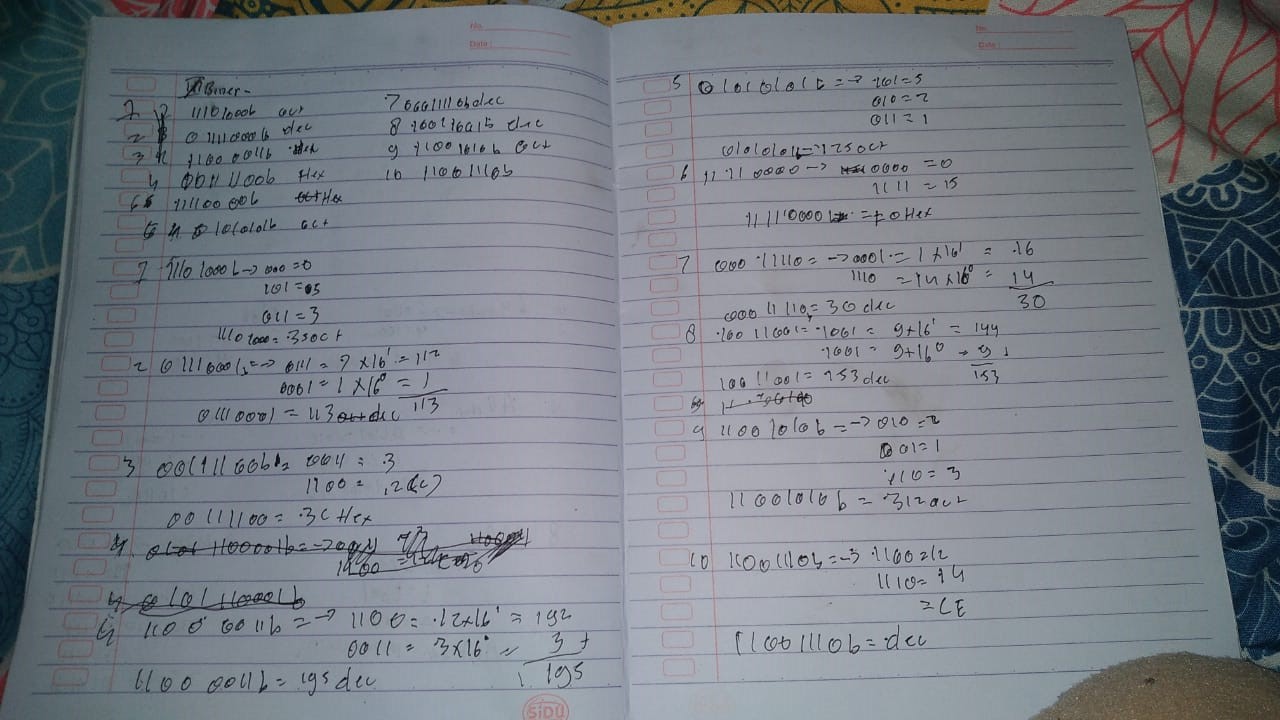 No.
Date :
Biner-
1 11101000b oct
2 01110001b dec
3 11000011b Hex
4 00111100b Hex
11110000b Hex
01010101b oct
7 00011110b dec
8 10011001b dec
9 11001010b oct
10 11001110b
1 11101000b → 000 = 0
101 = 5
011 = 3
11101000 = 350ct
2 01110001b → 0111 = 7 x 16¹ = 112
0001 = 1 x 16⁰ = 1
113
01110001 = 113 dec
3 00111100b = 0011 = 3
1100 = 12 (C)
00111100 = 3C Hex
4 1100 0011b = → 1100 = 12x16¹ = 192
0011 = 3x16⁰ = 3 +
195
1100 0011b = 195 dec
SIDU
No.
Date :
5 01010101b = → 101 = 5
010 = 2
011 = 1
01010101b = 125 oct
6 11110000 → 0000 = 0
1111 = 15
11110000b = F0 Hex
7 00011110 = → 0001 = 1 x 16¹ = 16
1110 = 14 x 16⁰ = 14
30
00011110 = 30 dec
8 10011001 = 1001 = 9+16¹ = 144
1001 = 9+16⁰ → 9 +
153
10011001 = 153 dec
9 11001010b = → 010 = 2
001 = 1
110 = 3
11001010b = 312 oct
10 11001110b = → 1100 = 12
1110 = 14
= CE
11001110b = dec